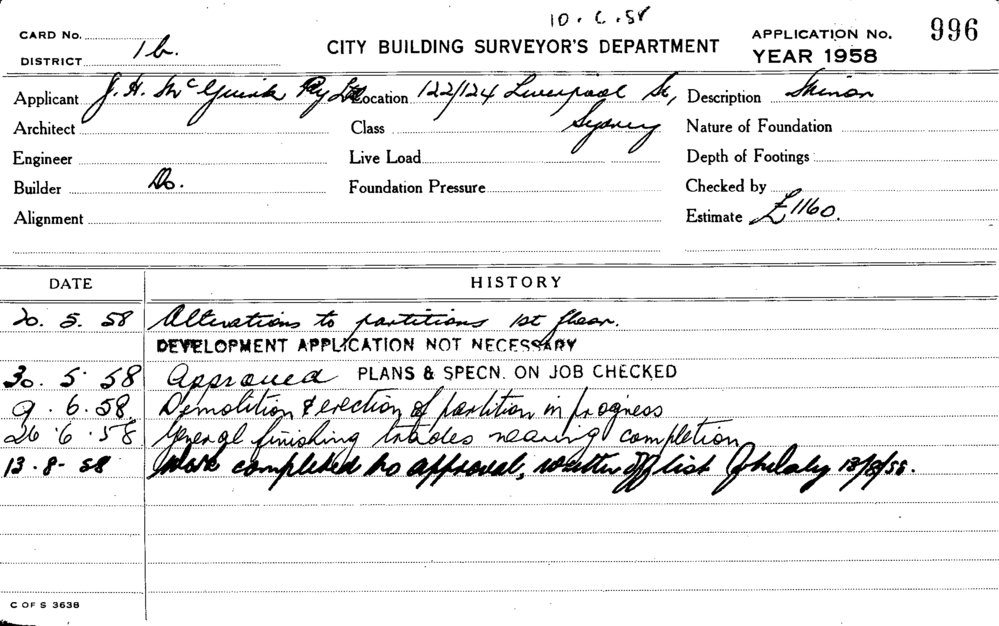 10.6.58
CARD No.
DISTRICT 1b.
CITY BUILDING SURVEYOR'S DEPARTMENT
APPLICATION No. 996
YEAR 1958
Applicant J. H. McGuirk Pty Ltd Location 122/124 Liverpool St, Sydney Description Minor
Architect Class Nature of Foundation
Engineer Live Load Depth of Footings
Builder Do. Foundation Pressure Checked by
Alignment Estimate £1160.
DATE HISTORY
20. 5. 58 Alterations to partitions 1st floor.
DEVELOPMENT APPLICATION NOT NECESSARY
30. 5. 58 Approved PLANS & SPECN. ON JOB CHECKED
9. 6. 58. Demolition & erection of partition in progress
26. 6. 58 General finishing trades nearing completion
13-8-58 Work completed to approval, written off list 13/8/58.
C OF S 3638